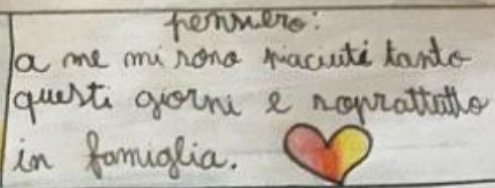 pensiero:
a me mi sono piaciuti tanto
questi giorni e soprattutto
in famiglia.